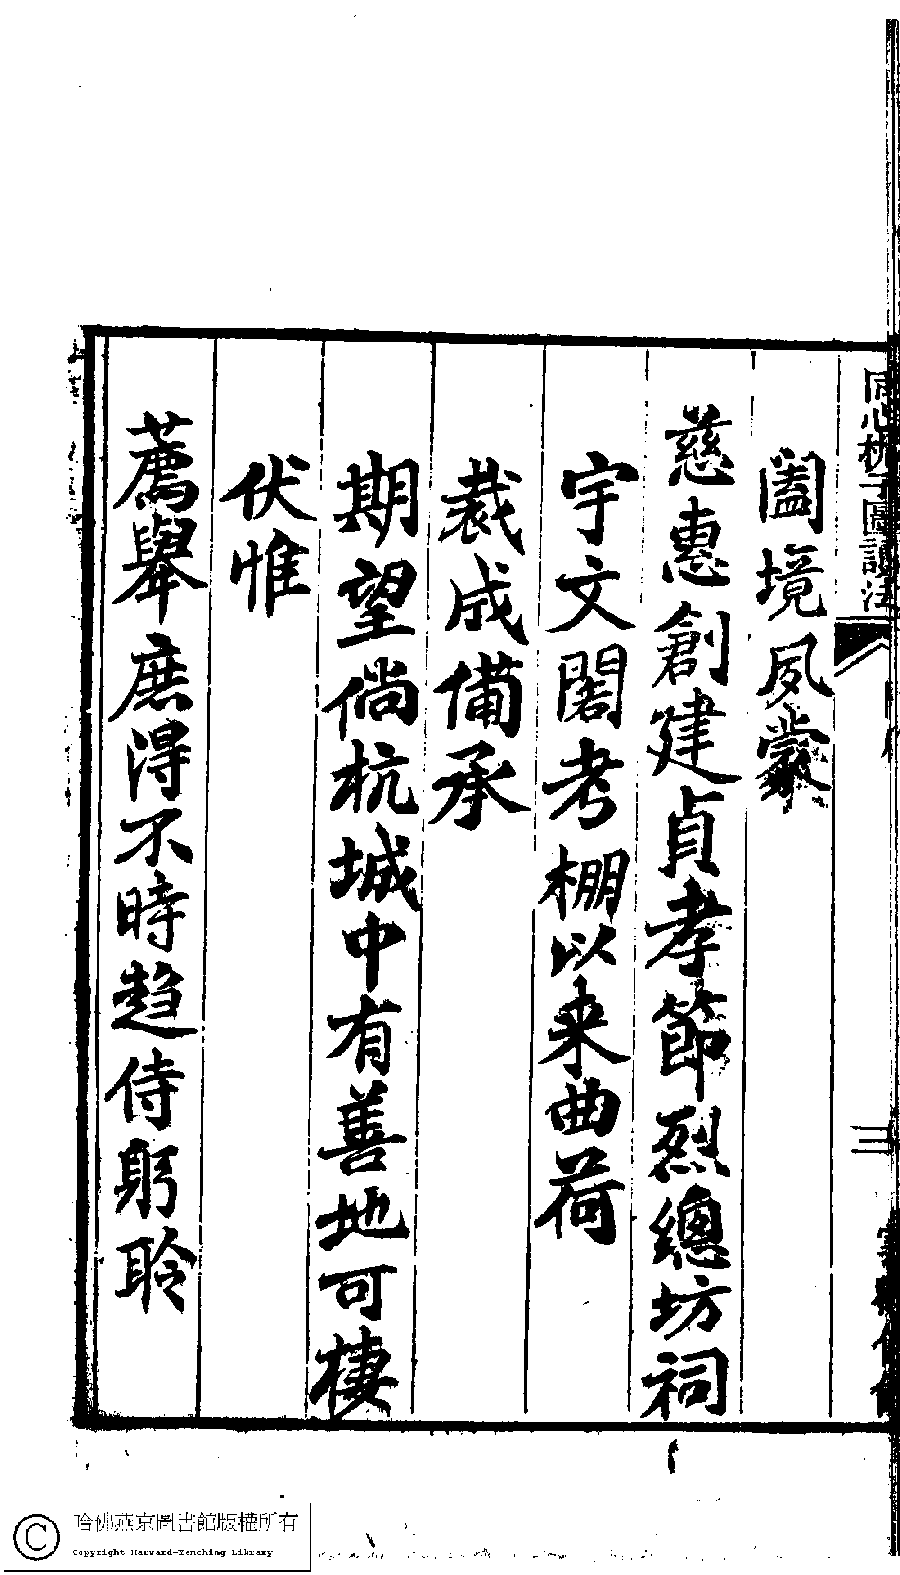 同心梔子圖讀法
三
闔境夙蒙
慈惠創建貞孝節烈總坊祠
宇文闍考棚以来曲荷
裁成備承
期望倘杭城中有善地可棲
伏惟
薦舉庶得不時趋侍躬聆
哈佛燕京圖書館版權所有
Copyright Harvard-Yenching Library